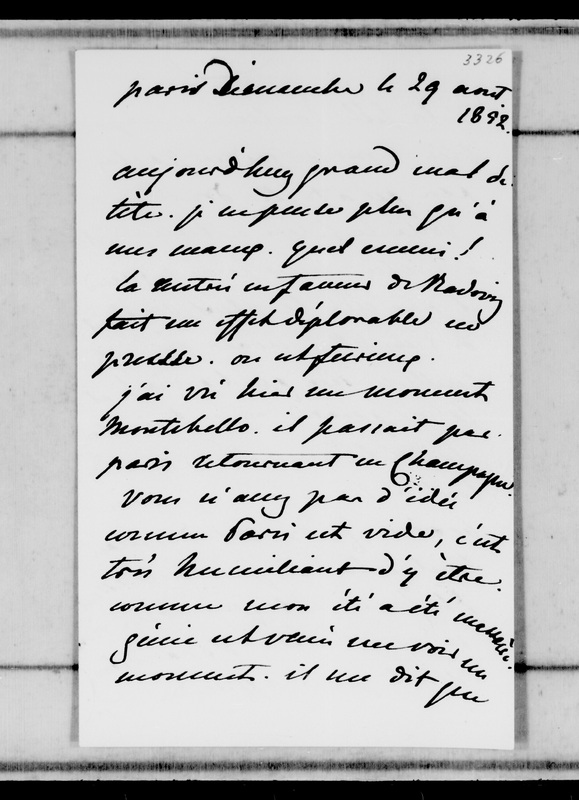 3326
paris Dimanche le 29 aout
1852.
aujourd'huy grand mal de
tête. je ne pense plus qu'à
mes maux. quel ennui!
la rentrée en faveur de Radowitz
fait un effet déplorable en
prusse. on est furieux.
j'ai vu hier un moment
Montebello. il passait par
paris retournant en Champagne.
Vous n'avez pas d'idée
comme Paris est vide, c'est
très humiliant d'y être.
comme mon été a été
génie est venu me voir un
moment. il me dit que